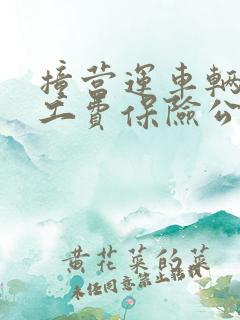 撞营运车辆
工费保险公
黄花菜的菜
未经同意禁止转载